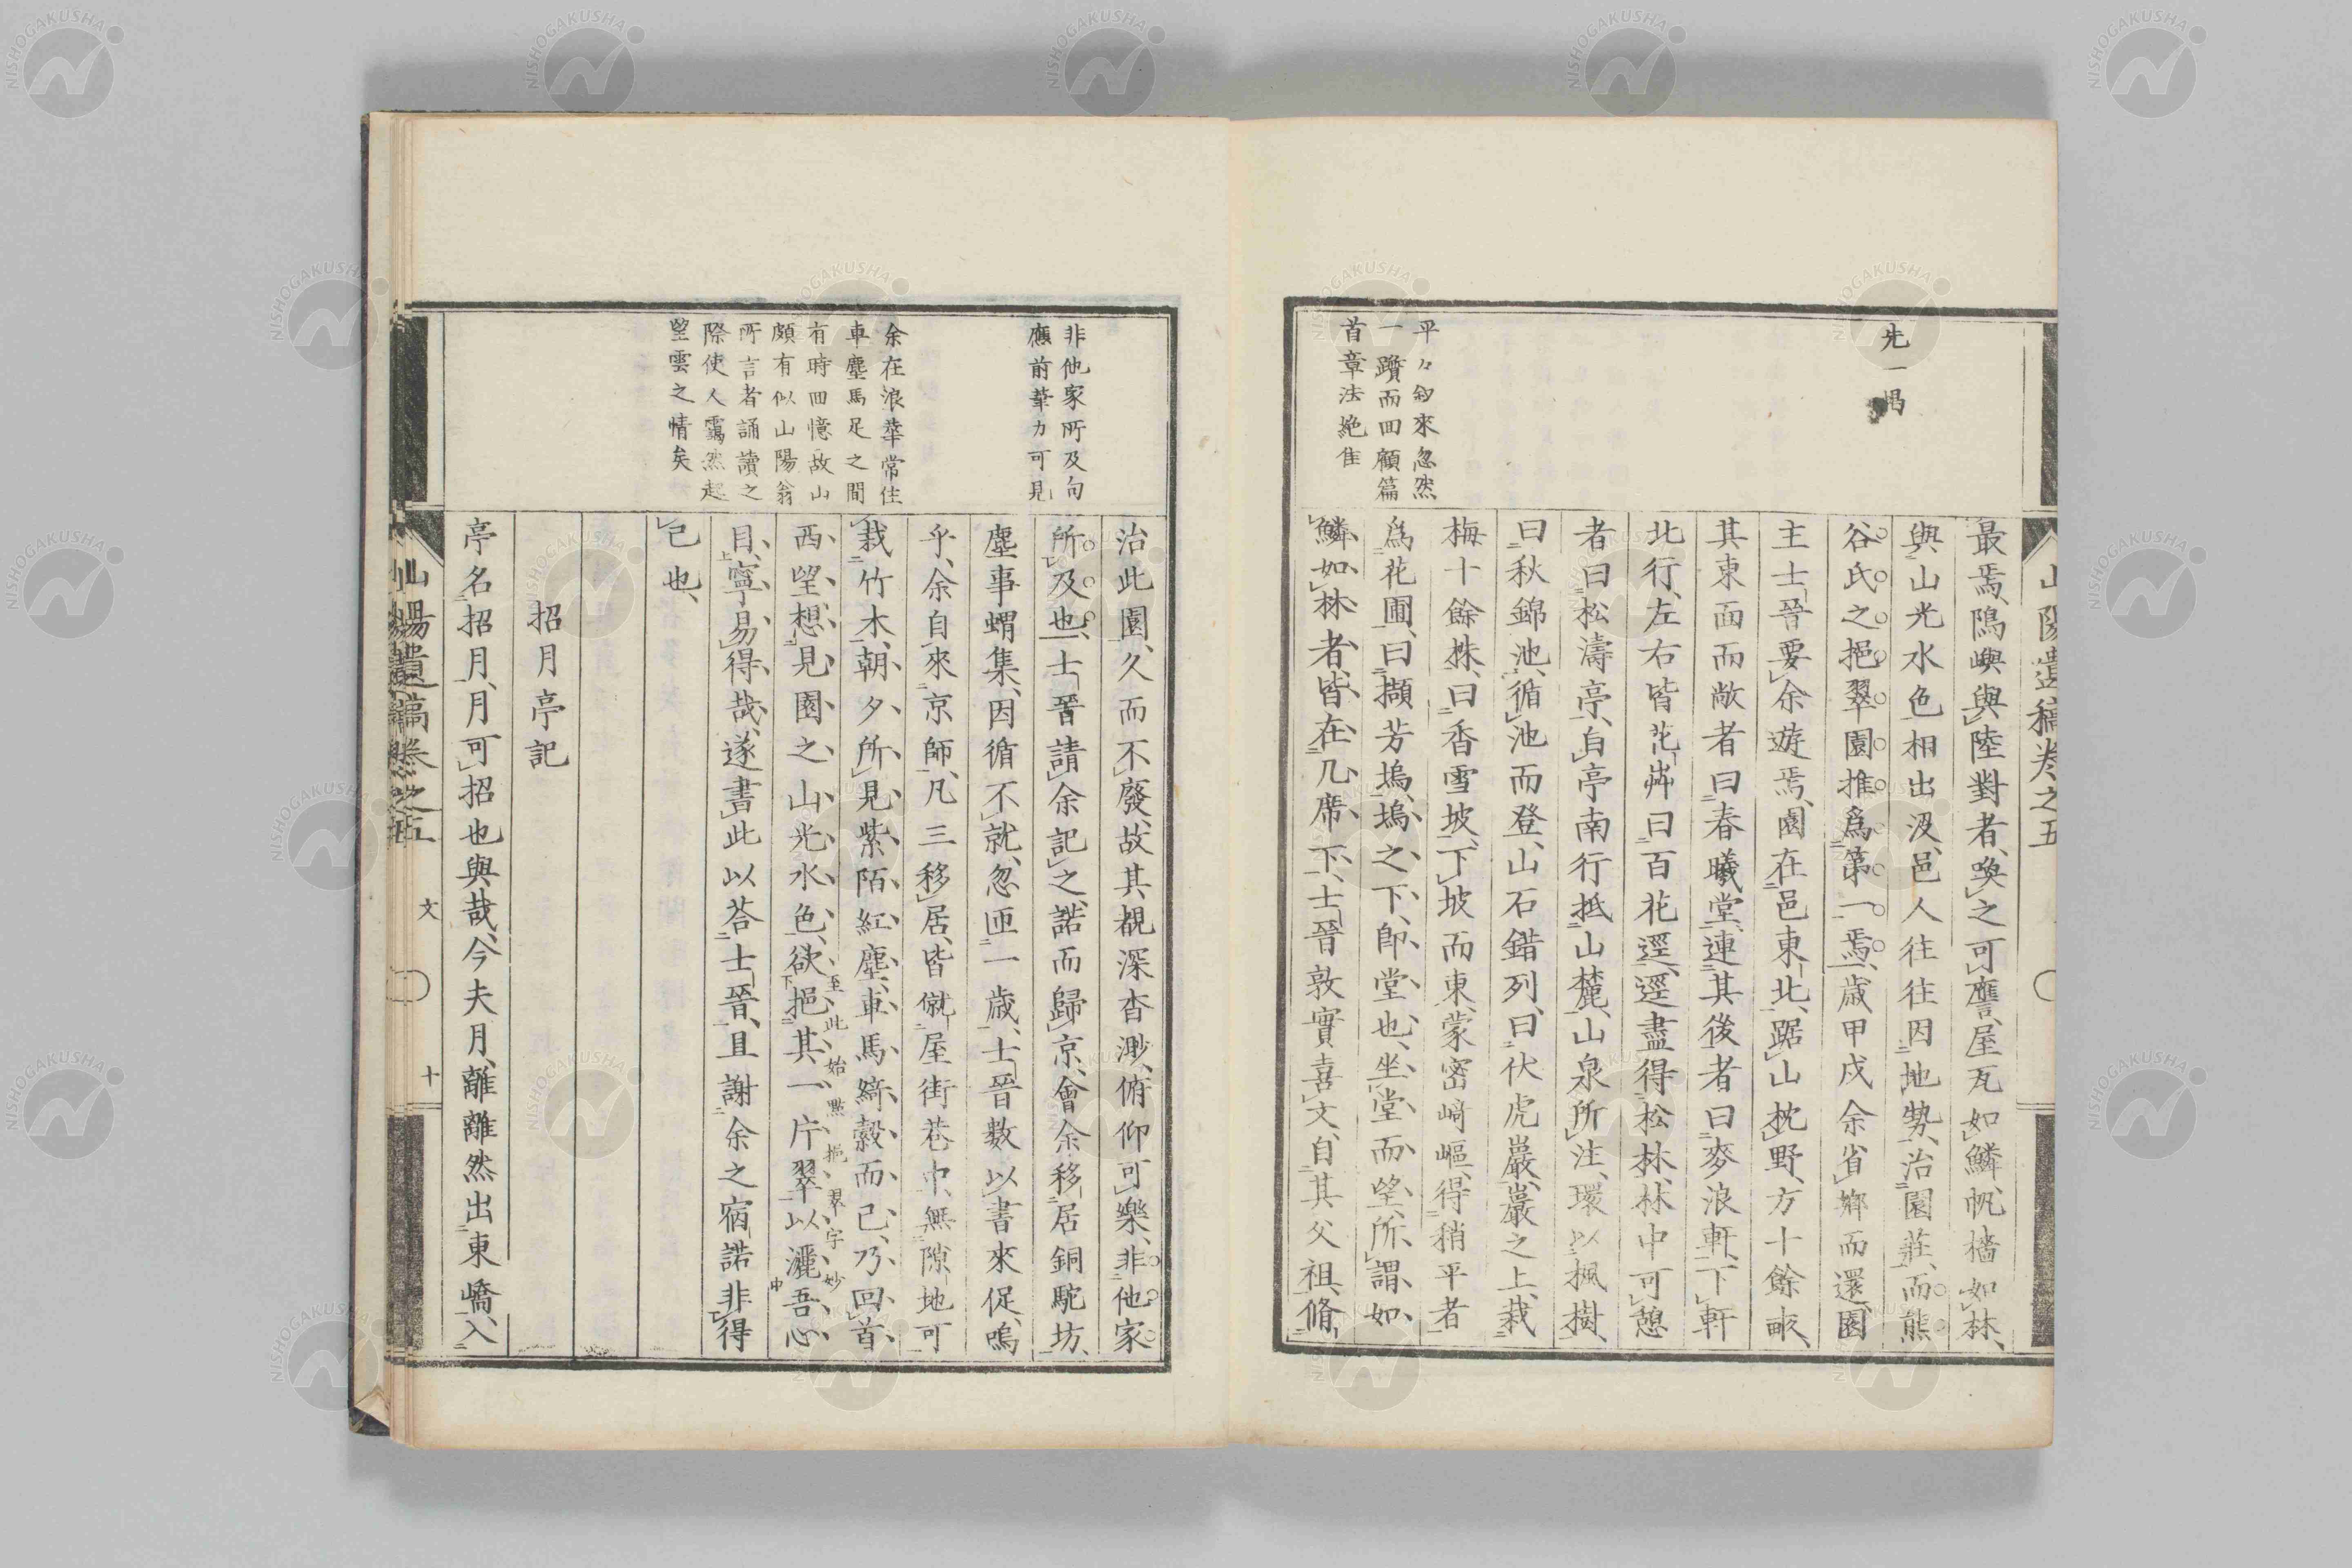 山陽遺稿卷之五
先一揚
平々敘來忽然
一躓而回顧篇
首章法絶佳
最焉、隝嶼與陸對者、喚之可譍、屋瓦如鱗、帆檣如林、
與山光水色相出沒、邑人往往因地勢、治園莊、而熊
谷氏之挹翠園推爲第一焉、歳甲戌余省鄕而還、園
主士晉要余遊焉、園在邑東北、踞山枕野、方十餘畝、
其東面而敞者曰春曦堂、連其後者曰麥浪軒、下軒
北行、左右皆花卉曰百花逕、逕盡得松林、林中可憩
者曰松濤亭、自亭南行抵山麓、山泉所注、環以楓樹、
曰秋錦池、循池而登、山石錯列、曰伏虎巖、巖之上、栽
梅十餘株、曰香雪坡、下坡而東、蒙密﨑嶇、得稍平者
爲花圃、曰擷芳塢、塢之下、卽堂也、坐堂而望、所謂如
鱗如林者、皆在几席下、士晉敦實喜文、自其父祖、脩
非他家所及句
應前華力可見
余在浪華常住
車塵馬足之間
有時回憶故山
頗有似山陽翁
所言者誦讀之
際使人靄然起
望雲之情矣
治此園、久而不廢、故其覩深杳渺、俯仰可樂、非他家
所及也、士晉請余記之、諾而歸京、會余移居銅駝坊、
塵事蝟集、因循不就、忽匝一歳、士晉數以書來促、嗚
乎、余自來京師、凡三移居、皆僦屋街巷中、無隙地可
栽竹木、朝夕所見、紫陌紅塵、車馬綺縠而已、乃回首
西望、想見園之山光水色、欲挹其一片翠以灑吾心
至此始點挹翠字妙
目、寧易得哉、遂書此以荅士晉、且謝余之宿諾非得
已也、
招月亭記
亭名招月、月可招也與哉、今夫月、離離然出東嶠、入
山陽遺稿卷之五 文 十